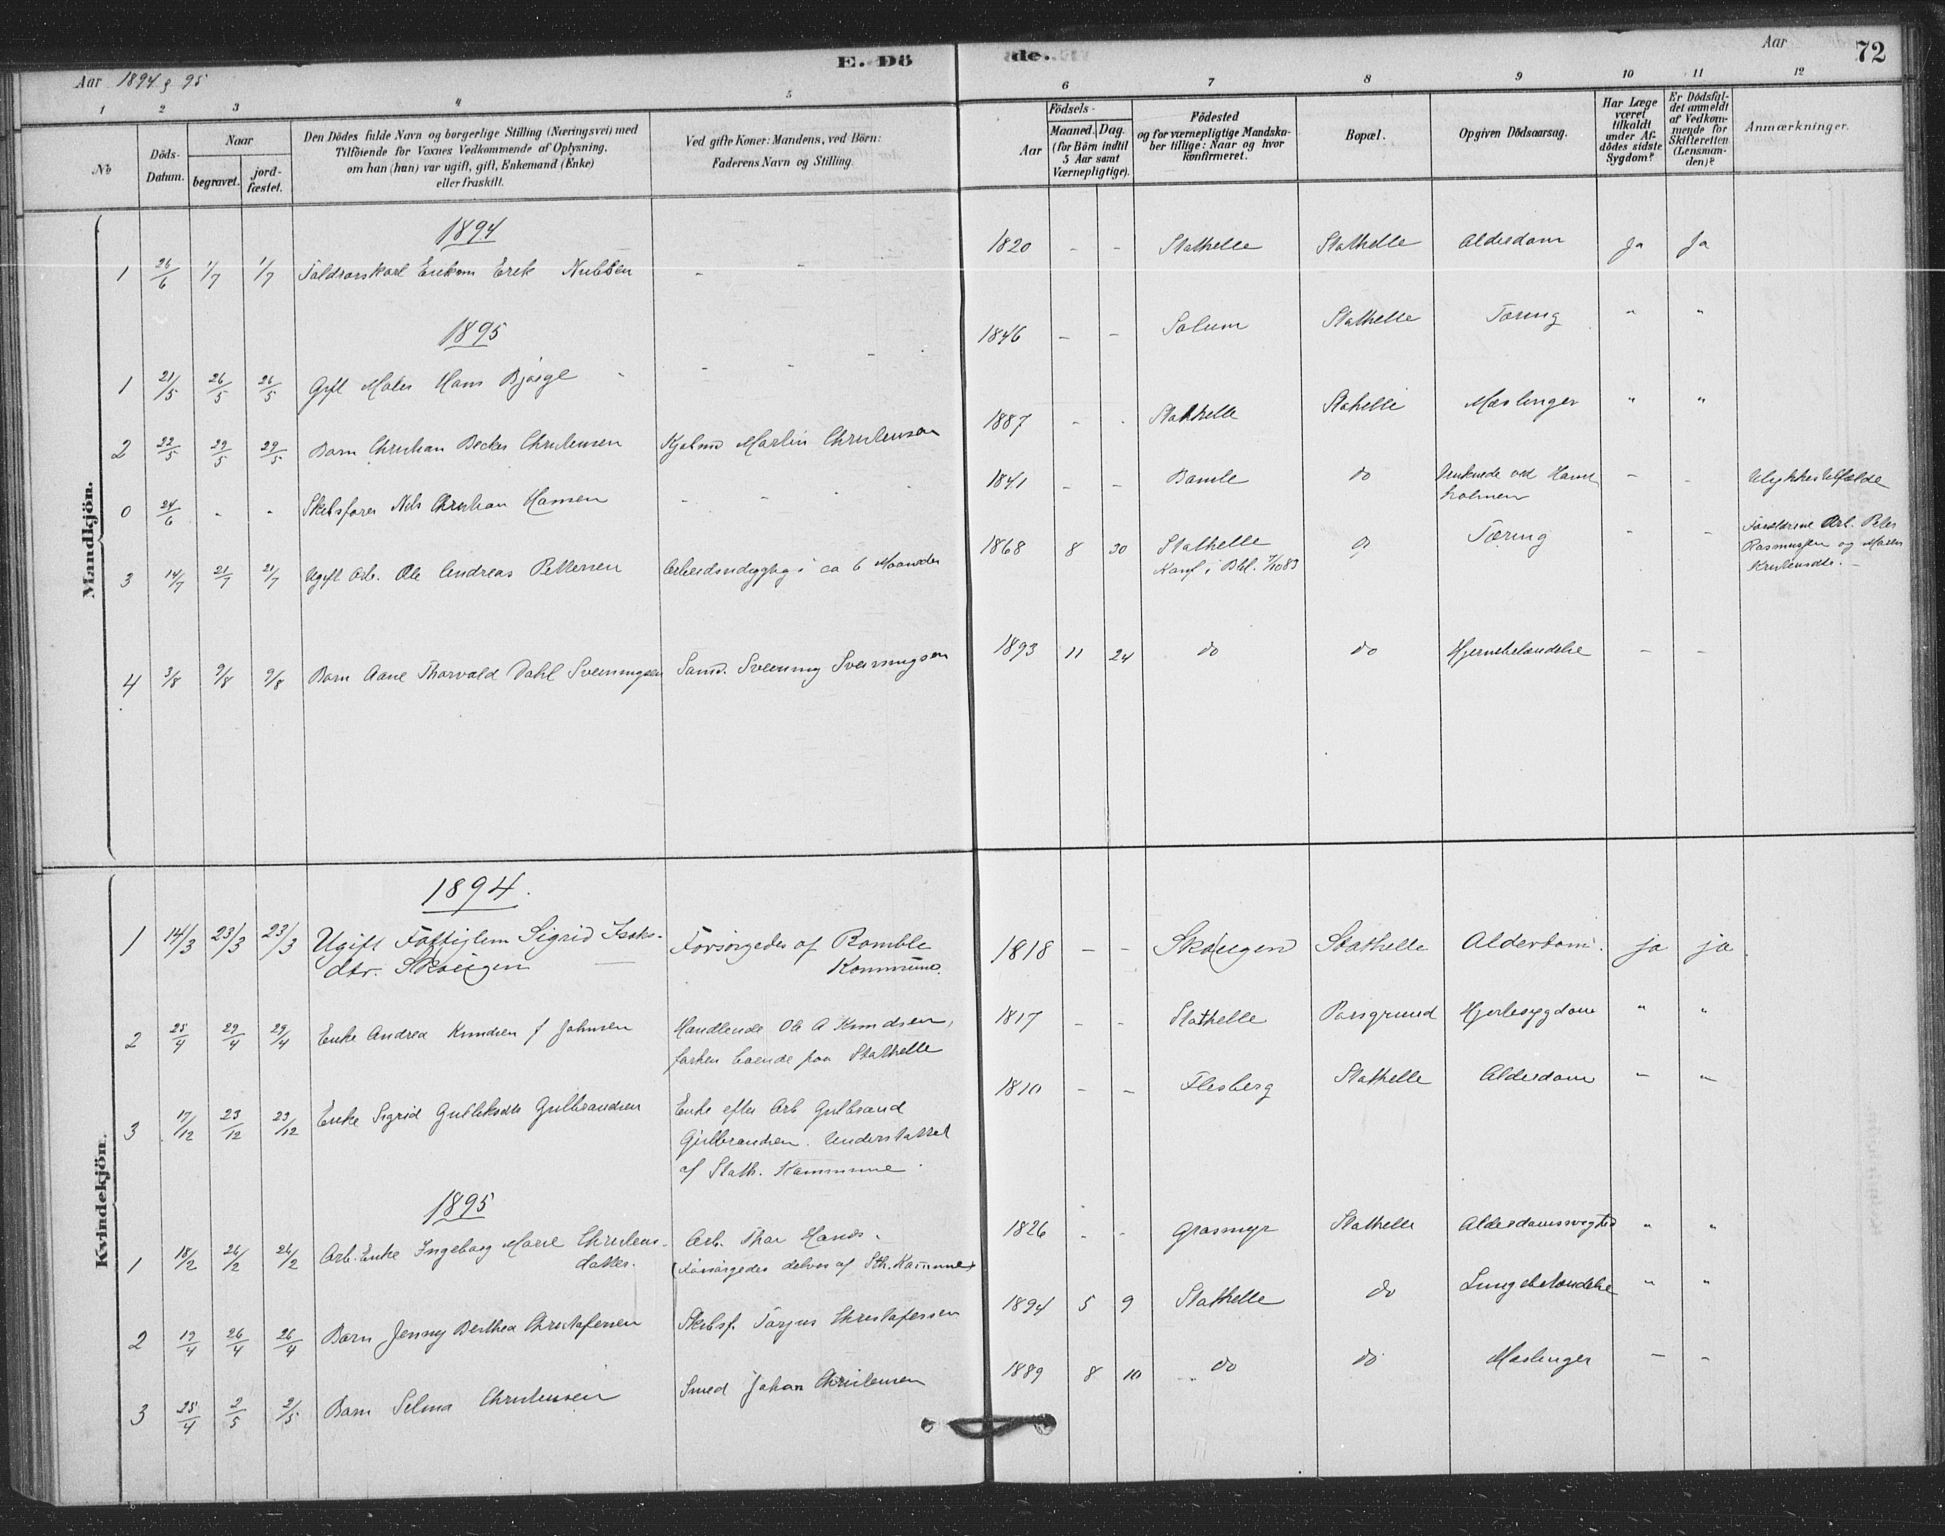 E. Dö de.
Aar 1894 & 95
Aar
72
1 2 3 4 5 6 7 8 9 10 11 12
No
Döds-Datum.
Naar
begravet.
jord-fæstet.
Den Dödes fulde Navn og borgerlige Stilling (Næringsvei) med
Tilföiende for Voxnes Vedkommende af Oplysning,
om han (hun) var ugift, gift, Enkemand (Enke)
eller fraskilt.
Ved gifte Koner: Mandens, ved Börn:
Faderens Navn og Stilling.
Födsels-
Aar
Maaned. Dag.
(for Börn indtil
5 Aar samt
Værnepligtige).
Födested
og for værnepligtige Mandska-
ber tillige: Naar og hvor
konfirmeret.
Bopæl.
Opgiven Dödsaarsag.
Har Læge
været
tilkaldt
under Af-
dödes sidste
Sygdom?
Er Dödsfal-
det anmeldt
af Vedkom-
mende for
Skifteretten
(Lensman-
den)?
Anmærkninger.
Mandkjön.
1894
1 26/6 1/7 1/7 Enkem Erik - - 1820 - - Stathelle Stathelle Alderdom Ja Ja
1895
1 21/5 26/5 26/5 Gift Maler Hans - - 1846 - - Solum Stathelle Tæring " "
2 22/5 29/5 29/5 Barn Christian Becker Christensen Martin Christensen 1887 - - Stathelle Stathelle Mæslinger " "
0 24/6 - - Skibsfører Nils Christian Hansen - - - 1841 - - Bamle do Druknede ved
holmen - - Ulykkestilfælde
3 14/7 21/7 21/7 Ugift Arb. Ole Andreas Pettersen Arbeidsudygtig i ca 6 Maaneder 1868 8 30 Stathelle
Konf i Bbl. 7/10 83 Tæring - - Forældrene Arb. Peter
Rasmussen og Maren
Kristensdtr. -
4 3/8 9/8 9/8 Barn Aane Thorvald Dahl Sveinungsen Sveinung Sveinungsen 1893 11 24 do do Hjernebetændelse - -
Kvindekjön.
1894.
1 14/3 23/3 23/3 Ugift Fattiglem Sigrid Isaks-
dtr. Skougen Forsørgedes af Bamble
Kommune. 1818 - - Skougen Stathelle Alderdom. ja ja
2 25/4 29/4 29/4 Enke Andrea Knudsen f Johnsen Handlende Ole A Knudsen,
forhen boende paa Stathelle 1817 - - Stathelle Porsgrund Hjertesygdom " "
3 17/12 23/12 23/12 Enke Sigrid Gulliksdtr Gulbrandsen Enke efter Arb Gulbrand
Gulbrandsen. Understøttet
af Stath. Kommune. 1810 - - Flesberg Stathelle Alderdom " "
1895
1 18/2 26/2 26/2 Arb. Enke Ingeborg Marie Christens-
datter. Arb. Thor Hans.
(Forsørgedes delvis af Sth. Kommune) 1826 - - Grasmyr Stathelle Alderdomssvaghed " "
2 19/4 26/4 26/4 Barn Jenny Berthea Christofersen Skibsf. Torjus Christofersen 1894 5 9 Stathelle do Lungebetændelse " "
3 25/4 2/5 2/5 Barn Selma Christensen Smed Johan Christensen 1889 8 10 do do Mæslinger - -